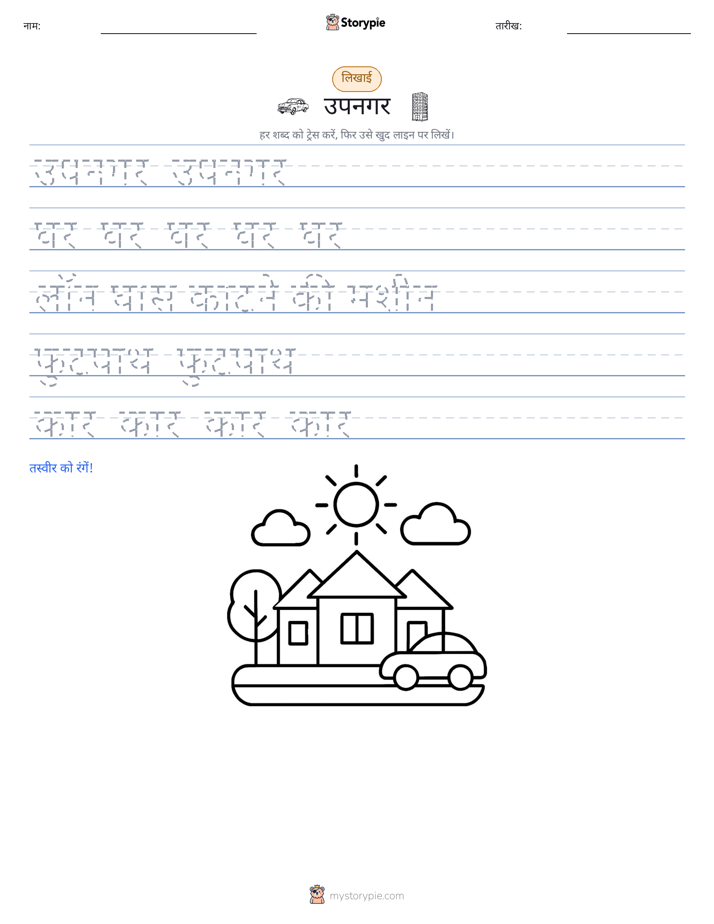 नाम:
Storypie
तारीख:
लिखाई
उपनगर
हर शब्द को ट्रेस करें, फिर उसे खुद लाइन पर लिखें।
उपनगर उपनगर
घर घर घर घर घर
लॉन घास काटने की मशीन
फुटपाथ फुटपाथ
कार कार कार कार
तस्वीर को रंगें!
mystorypie.com